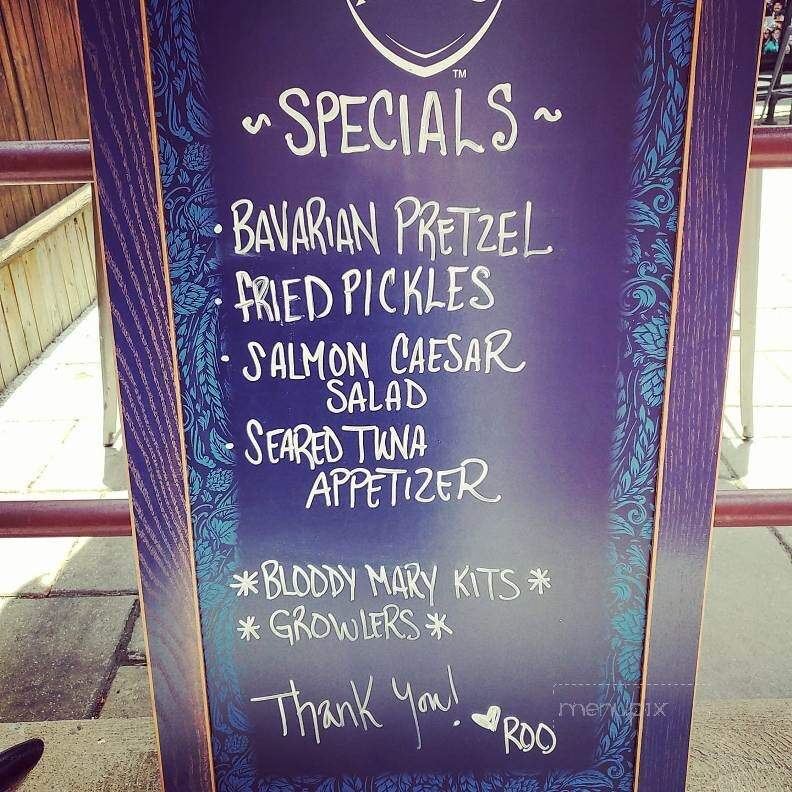 TM
~ SPECIALS ~
• BAVARIAN PRETZEL
• FRIED PICKLES
• SALMON CAESAR
SALAD
• SEARED TUNA
APPETIZER
* BLOODY MARY KITS *
* GROWLERS *
Thank You! ♥ ROO
menupix